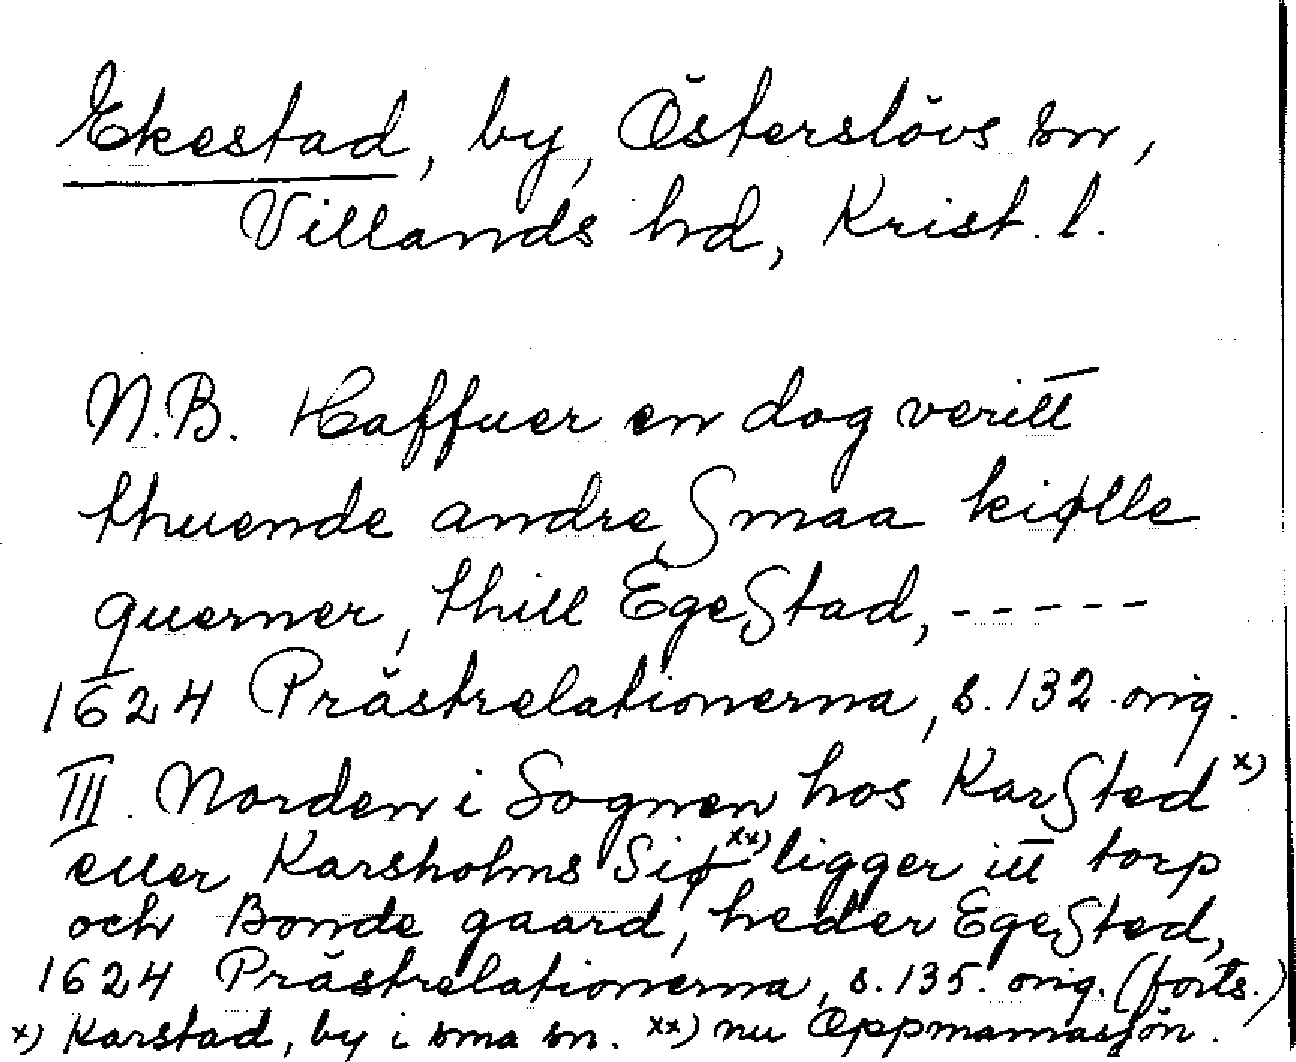 Ekestad, by, Österslövs sn,
Villands hd, Krist. l.
N.B. Haffuer en dog veritt
thuende andre, Smaa kiølle
querner, thill EgeStad, - - - - -
1624 Prästrelationerna, s. 132 orig.
III. Norden i Sognen hos KarSted x)
eller Karsholms Siø xx) ligger itt torp
och Bonde gaard, heder EgeSted,
1624 Prästrelationerna, s. 135. orig. (forts.)
x) Karstad, by i sma sn. xx) nu Oppmannasjön.